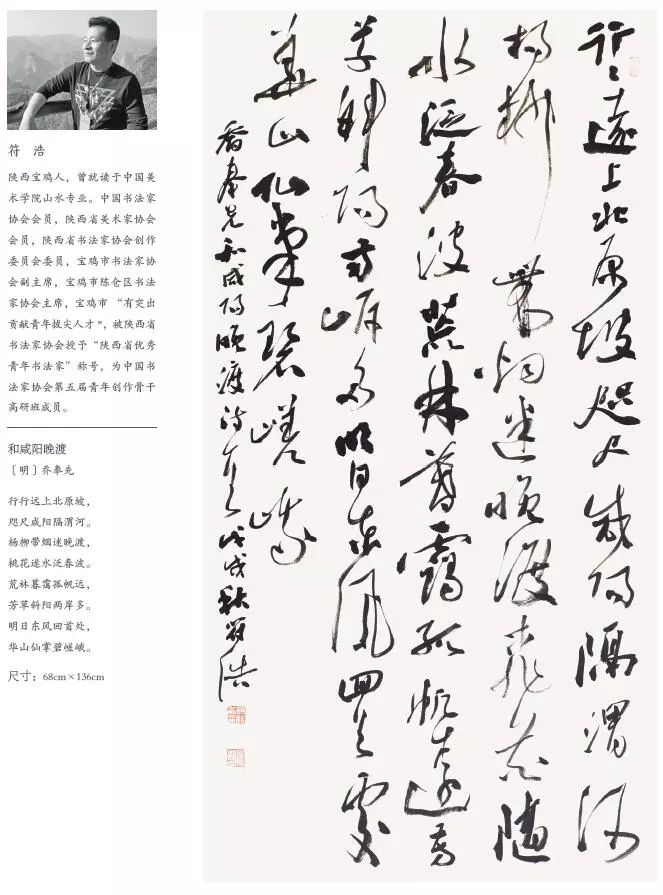 符 浩
陕西宝鸡人，曾就读于中国美
术学院山水专业。中国书法家
协会会员，陕西省美术家协会
会员，陕西省书法家协会创作
委员会委员，宝鸡市书法家协
会副主席，宝鸡市陈仓区书法
家协会主席，宝鸡市 “有突出
贡献青年拔尖人才”，被陕西省
书法家协会授予“陕西省优秀
青年书法家”称号，为中国书
法家协会第五届青年创作骨干
高研班成员。
和咸阳晚渡
〔明〕乔奉先
行行远上北原坡，
咫尺咸阳隔渭河。
杨柳带烟迷晚渡，
桃花遂水泛春波。
荒林暮霭孤帆远，
芳草斜阳两岸多。
明日东风回首处，
华山仙掌碧嵯峨。
尺寸：68cm×136cm
行々遠上北原坡咫尺咸陽隔渭河
楊柳帶烟迷晚渡桃花随
水泛春波荒林暮靄孤帆遠芳
草斜陽两岸多明日東風回首處
華山仙掌碧嵯峨
和咸陽晚渡诗一首戊戌秋符浩